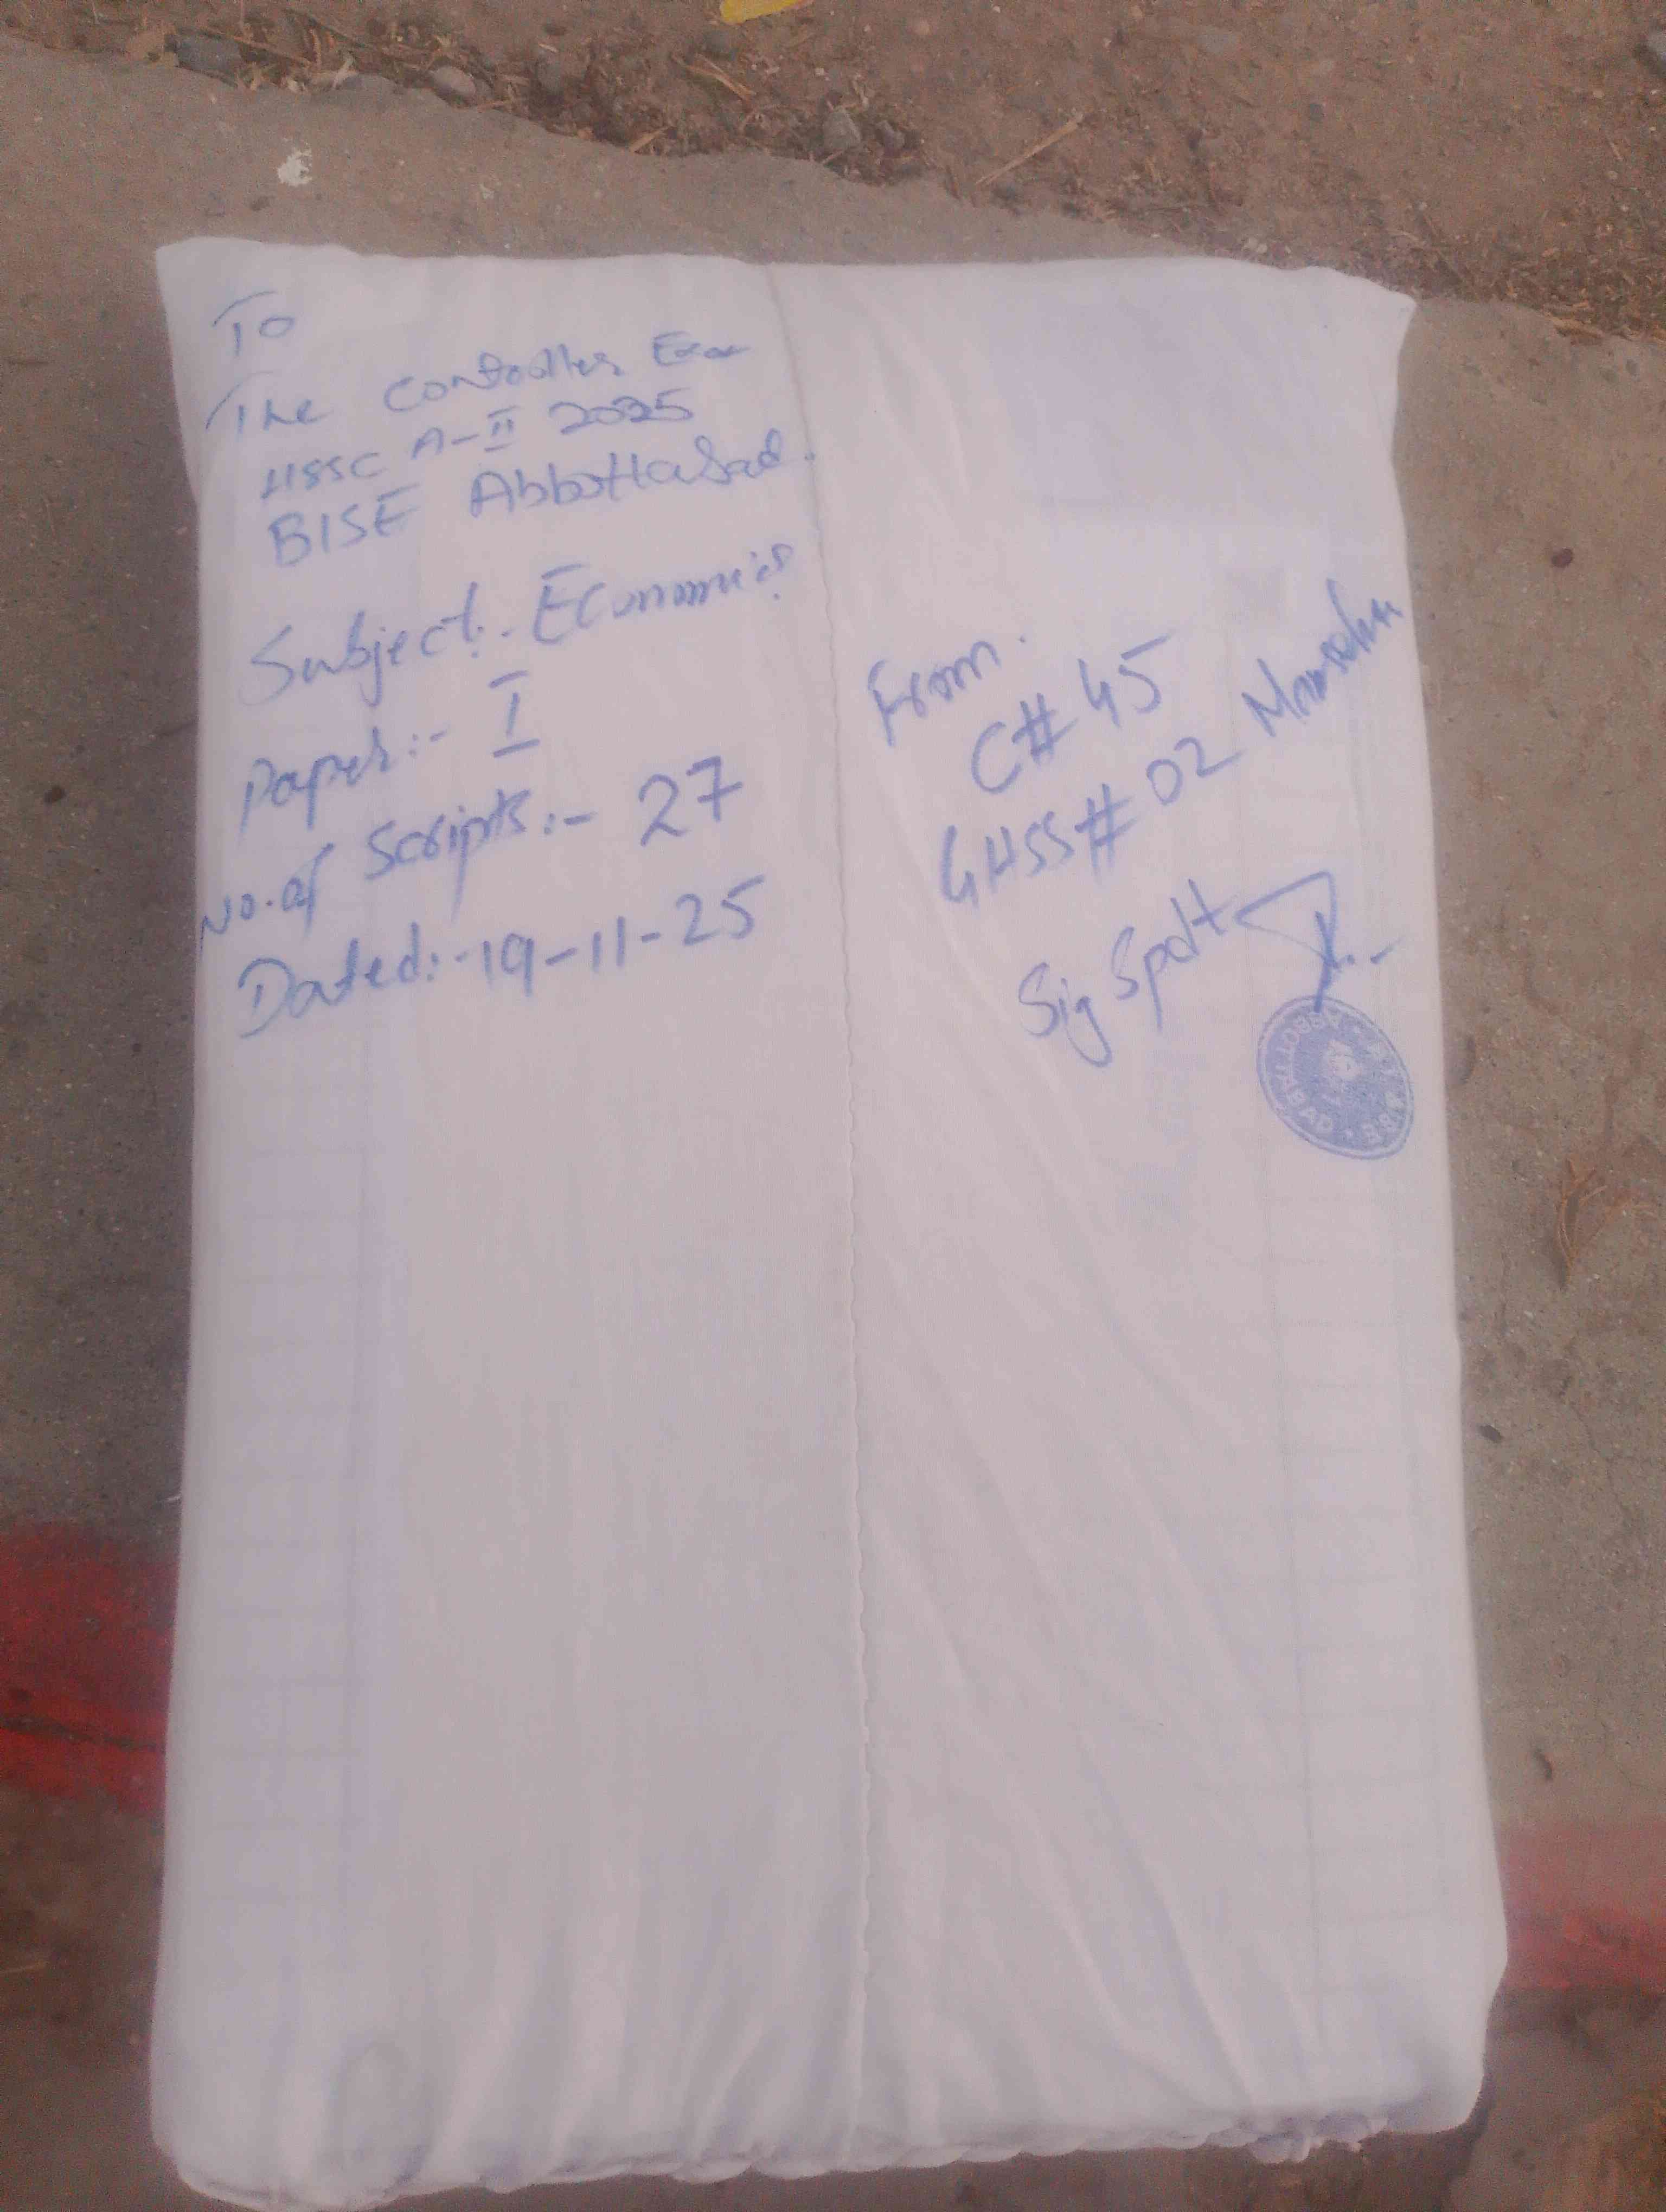 To
The Controller Exam
HSSC A-II 2025
BISE Abbottabad.
Subject:- Economics
Paper:- I
No. of Scripts:- 27
Dated:- 19-11-25
From.
C# 45
GHSS# 02 Mansehra
Sig Spdt
ABBOTTABAD